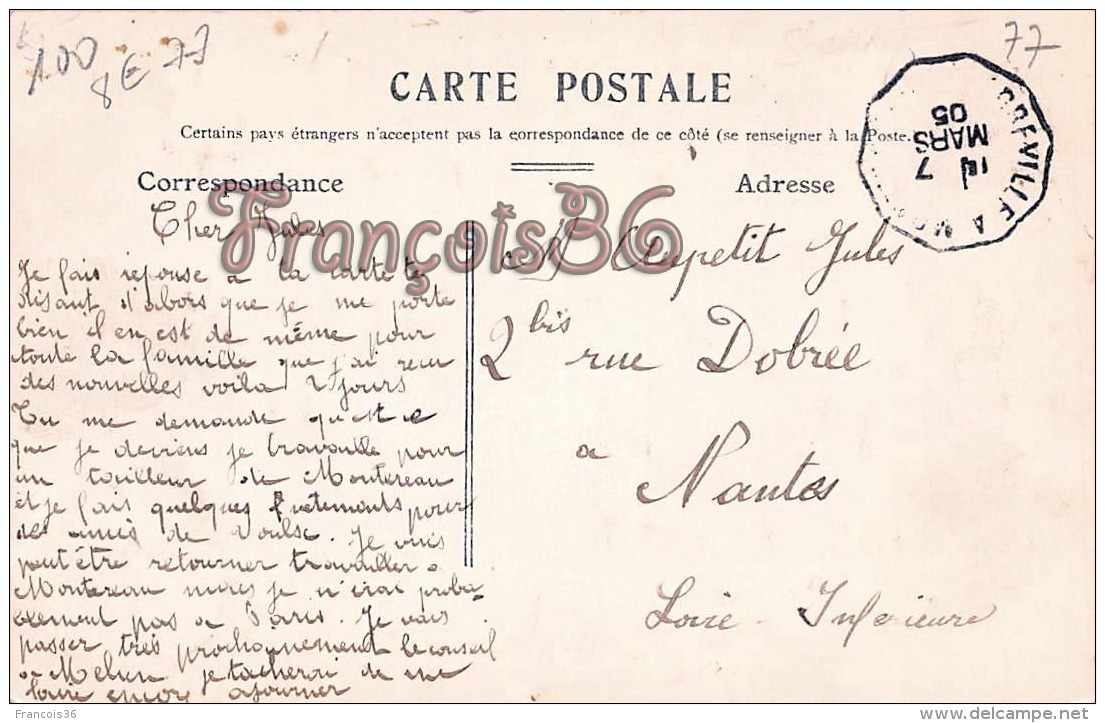 100
8E 77
77
CARTE POSTALE
Certains pays étrangers n'acceptent pas la correspondance de ce côté (se renseigner à la Poste.
7
MARS
05
Correspondance
Adresse
Cher Jules
Je fais réponse a ta carte te
disant d'abors que je me porte
bien il en est de même pour
toute la famille que j'ai recu
des nouvelles voila 2 jours
Tu me demande qu'est ce
que je deviens je travaille pour
un tailleur de Montereau
et je fais quelques vetements pour
des amis de Voulx. Je vais
peut être retourner travailler a
Montereau mais je n'irai proba-
blement pas a Paris. Je vais
passer très prochainement le conseil
a Melun je tacherai de me
faire encore ajourner
M Aupetit Jules
2 bis rue Dobrée
a
Nantes
Loire-Inferieure
François36
Francois36
delcampe.net